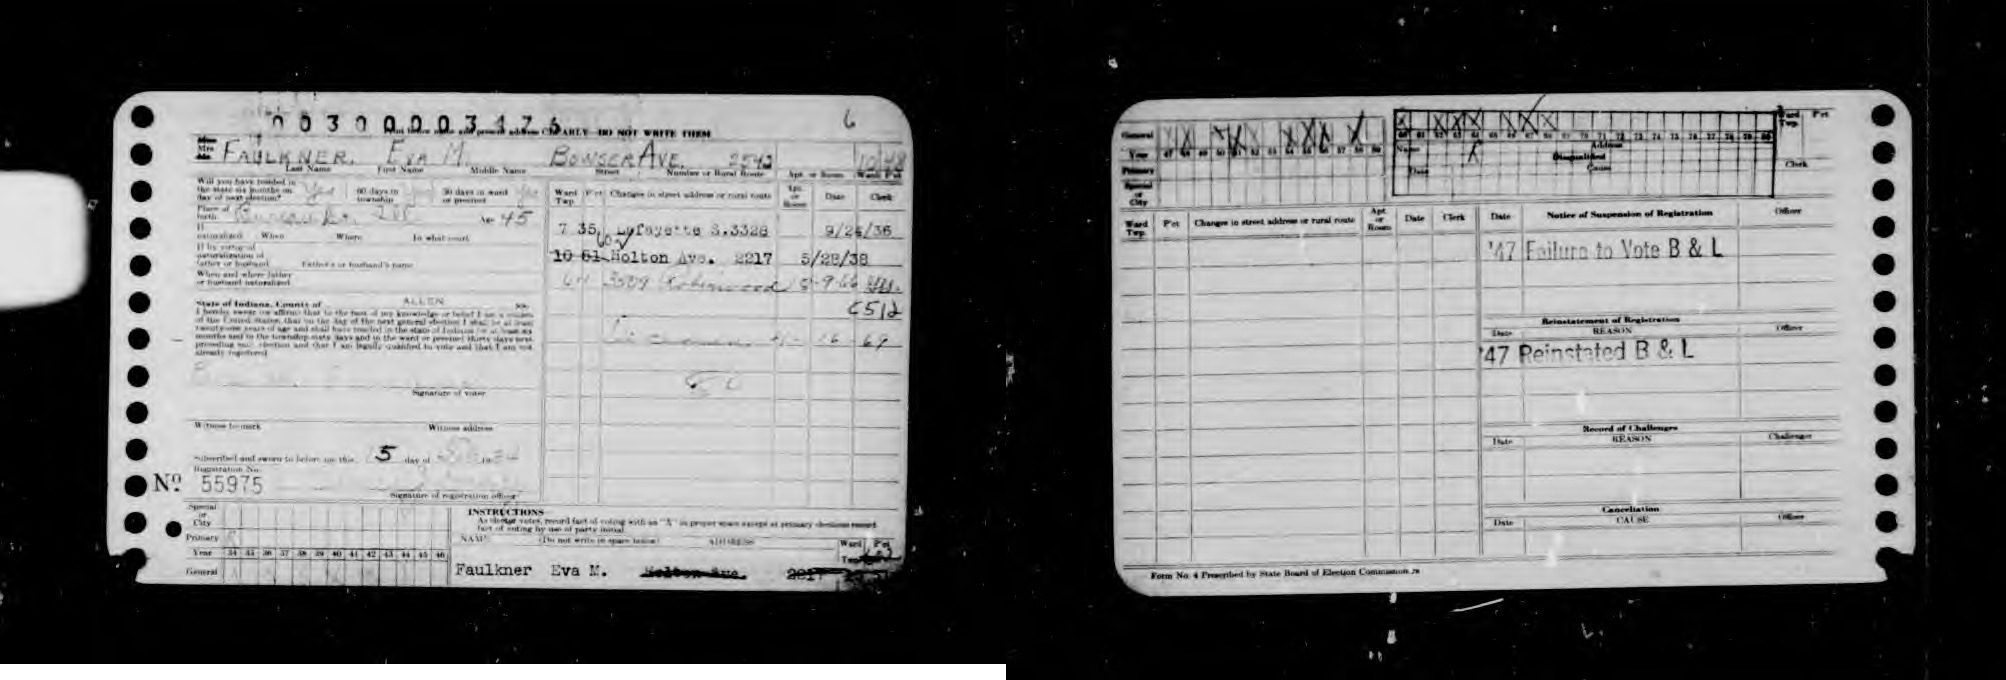 00300003476
6
CLEARLY—DO NOT WRITE THEM
Mrs
FAULKNER, EVA M. BOWSER AVE. 2542 10 48
Last Name First Name Middle Name Street Number or Rural Route Apt. or Room Ward Pct
Will you have resided in
the state six months on
day of next election? Yes 60 days in
township 30 days in ward
or precinct
Place of
birth Age 45
If
naturalized When Where In what court
If by virtue of
naturalization of
father or husband Father's or husband's name
When and where father
or husband naturalized
State of Indiana, County of ALLEN
I hereby swear (or affirm) that to the best of my knowledge or belief I am a citizen
of the United States, that on the day of the next general election I shall be at least
twenty-one years of age and shall have resided in the state of Indiana for at least six
months and in the township sixty days and in the ward or precinct thirty days next
preceding such election and that I am legally qualified to vote and that I am not
already registered
Signature of voter
Witness to mark Witness address
Subscribed and sworn to before me this 5 day of
Registration No.
Nº 55975
Signature of registration officer
Ward
Twp. Pct Changes in street address or rural route Apt.
or
Room Date Clerk
7 35 Lafayette S.3328 9/24/36
10 61 Holton Ave. 2217 5/28/38
Robinwood 5-9-66
5512
69
Special
or
City
Primary
Year 34 35 36 37 38 39 40 41 42 43 44 45 46
General
INSTRUCTIONS
As elector votes, record fact of voting with an "X" in proper space except at primary elections record
fact of voting by use of party initial.
NAME (Do not write in space below) ADDRESS Ward
Twp. Pct
Faulkner Eva M. Holton Ave. 2217
General
Year 47 48 49 50 51 52 53 54 55 56 57 58 59
Primary
Special
or
City
60 61 62 63 64 65 66 67 68 69 70 71 72 73 74 75 76 77 78 79 80
Ward
Twp. Pct
Name Address
Disqualified
Date Cause
Clerk
Ward
Twp. Pct Changes in street address or rural route Apt.
or
Room Date Clerk
Date Notice of Suspension of Registration Officer
'47 Failure to Vote B & L
Reinstatement of Registration
Date REASON Officer
'47 Reinstated B & L
Record of Challenges
Date REASON Challenger
Cancellation
Date CAUSE Officer
Form No. 4 Prescribed by State Board of Election Commission